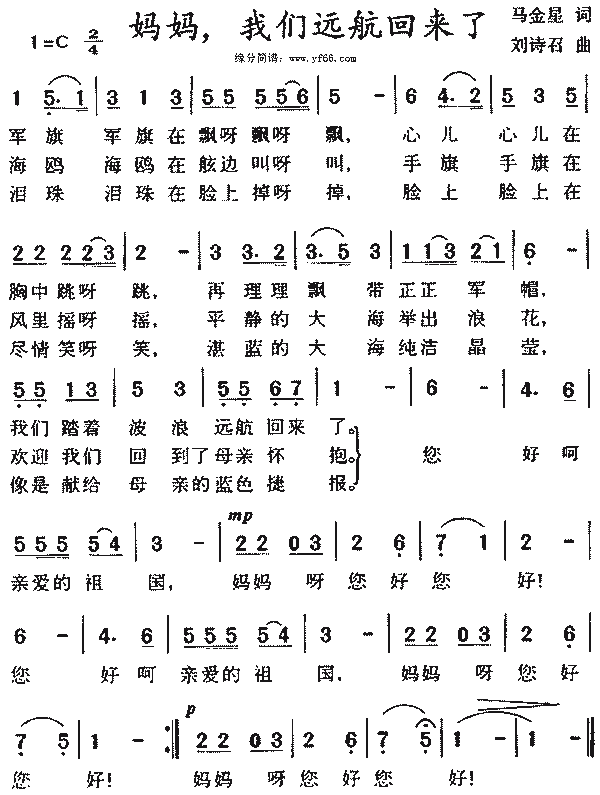 妈妈，我们远航回来了
1=C 2/4
马金星 词
刘诗召 曲
缘分简谱：www.yf66.com
1 5. 1 | 3 1 3 | 5 5 5 5 5 6 | 5 - | 6 4. 2 | 5 3 5 |
军旗 军旗在飘呀飘呀 飘， 心儿 心儿在
海鸥 海鸥在舷边叫呀 叫， 手旗 手旗在
泪珠 泪珠在脸上掉呀 掉， 脸上 脸上在
2 2 2 2 3 | 2 - | 3 3. 2 | 3. 5 3 | 1 1 3 2 1 | 6 - |
胸中跳呀 跳， 再 理理飘 带正正 军 帽，
风里摇呀 摇， 平 静的大 海举出 浪 花，
尽情笑呀 笑， 湛 蓝的大 海纯洁 晶 莹，
5 5 1 3 | 5 3 | 5 5 6 7 | 1 - | 6 - | 4. 6 |
我们踏着 波 浪 远航回来 了。
欢迎我们 回 到了母亲怀 抱。 您 好呵
像是献给 母 亲的蓝色捷 报。
mp
5 5 5 5 4 | 3 - | 2 2 0 3 | 2 6 | 7 1 | 2 - |
亲爱的祖 国， 妈妈 呀 您 好 您 好！
6 - | 4. 6 | 5 5 5 5 4 | 3 - | 2 2 0 3 | 2 6 |
您 好呵 亲爱的祖 国， 妈妈 呀您好
p
7 5 | 1 - :| 2 2 0 3 | 2 6 | 7 5 | 1 - | 1 - ||
您 好！ 妈妈 呀您 好您 好！